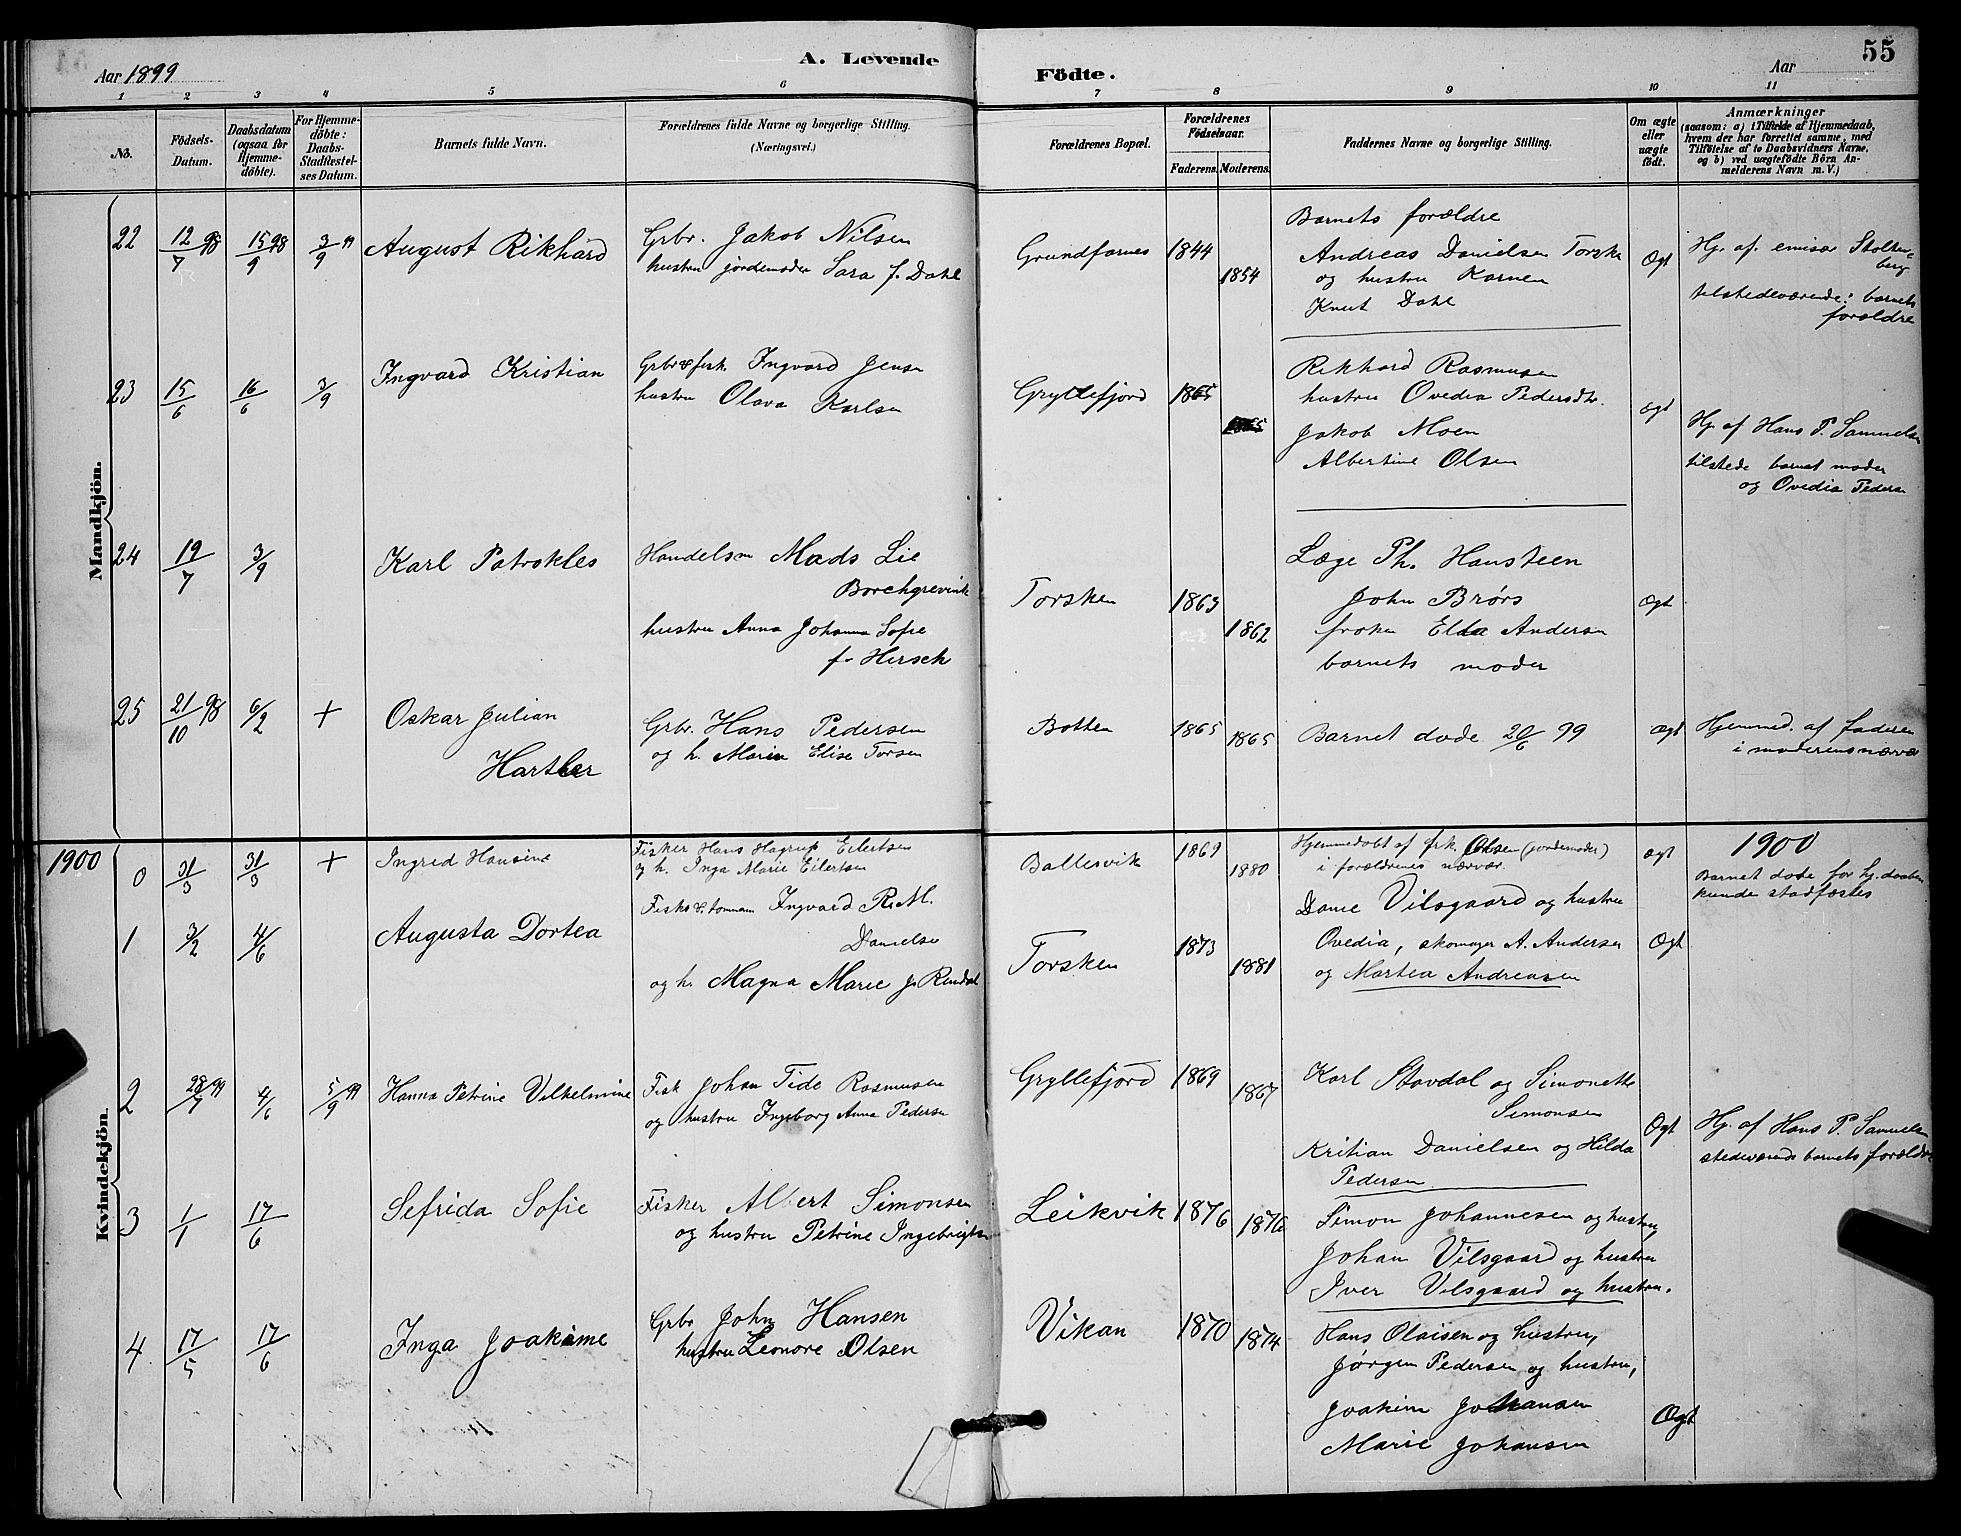 Aar 1899
A. Levende
Födte.
Aar
55
1 2 3 4 5 6 7 8 9 10 11
No.
Födsels-Datum.
Daabsdatum (ogsaa for Hjemmedöbte).
For Hjemmedöbte: Daabs-Stadfæstelses Datum.
Barnets fulde Navn.
Forældrenes fulde Navne og borgerlige Stilling. (Næringsvei.)
Forældrenes Bopæl.
Forældrenes Födselsaar.
Faderens. Moderens.
Faddernes Navne og borgerlige Stilling.
Om ægte eller uægte födt.
Anmærkninger
(saasom: a) i Tilfælde af Hjemmedaab, hvem der har forrettet samme, med Tilföielse af to Daabsvidners Navne, og b) ved uægtefödte Börn Anmelderens Navn m. V.)
Mandkjön.
22 12/7 98 15/9 98 3/9 99 August Rikhard
Grbr. Jakob Nilsen
hustru jordemoder Sara f. Dahl
Grundfarnes 1844 1854
Barnets forældre
Andreas Danielsen Torsken
og hustru Karnen
Knut Dahl
Ægt
Hj. af. emisær Stoltenberg
tilstedeværende: barnets
forældre
23 15/6 16/6 3/9 Ingvard Kristian
Grbr & fisk. Ingvard Jensen
hustru Olava Karlsen
Gryllefjord 1865 1865
Rikhard Rasmusen
hustru Ovedia Pedersdtr.
Jakob Moen
Albertine Olsen
ægt
Hj. af Hans P. Samuelsen
tilstede barnet moder
og Ovedia Pedersen
24 19/7 3/9 Karl Patrokles
Handelsm Mads Lie
Borchgrevink
hustru Anna Johanna Sofie
f. Hersch
Torsken 1863 1862
Læge Ph. Hansteen
John Brørs
frøken Elda Andersen
barnets moder
Ægt
25 21/10 98 6/2 + Oskar Julian
Harther
Grbr. Hans Pedersen
og h. Maria Elise Torsen
Botten 1865 1865
Barnet døde 20/6 99
ægt
Hjemmed. af faderen
i moderens nærvær
Kvindekjön.
1900
0 31/3 31/3 + Ingrid Hansine
Fisker Hans Hagrup Eilertsen
og h. Inga Marie Eilertsen
Ballesvik 1869 1880
Hjemmedøbt af frk. Olsen (jordemoder)
i forældrenes nærvær.
ægt
1900
Barnet døde før hj. daaben
kunde stadfæstes
1 3/2 4/6 Augusta Dortea
Fisker & tømmerm Ingvard R. M.
Danielsen
og h. Magna Marie f. Rendal
Torsken 1873 1881
Danie Vilsgaard og hustru
Ovedia, skomager A. Andersen
og Martea Andreasen
Ægt
2 28/7 99 4/6 5/9 99 Hanna Petrine Vilhelmine
Fisk Johan Tide Rasmusen
og hustru Ingeborg Anna Pedersen
Gryllefjord 1869 1867
Karl Stavdal og Simonette
Simonsen
Kritian Danielsen og Hilda
Pedersen
Ægt
Hj. af Hans P. Samuelsen
stedeværende barnets forældre
3 1/1 17/6 Sefrida Sofie
Fisker Albert Simonsen
og hustru Petrine Ingebrigtsen
Leikvik 1876 1876
Simon Johannesen og hustru,
Johan Vilsgaard og hustru
Iver Vilsgaard og hustru.
4 17/5 17/6 Inga Joakime
Grbr John Hansen
hustru Leonore Olsen
Vikan 1870 1874
Hans Olaisen og hustru,
Jørgen Pedersen og hustru,
Joakim Johansen
Marie Johansen
Ægt